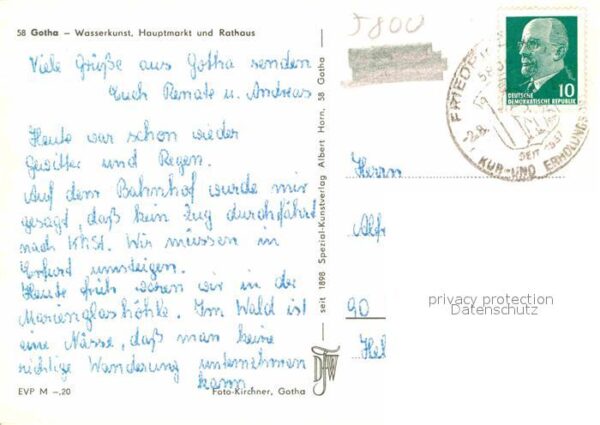 58 Gotha – Wasserkunst, Hauptmarkt und Rathaus
Viele Grüße aus Gotha senden
Euch Renate u. Andreas
Heute war schon wieder
Gewitter und Regen.
Auf dem Bahnhof wurde mir
gesagt, daß kein Zug durchfährt
nach KMSt. Wir müssen in
Erfurt umsteigen.
Heute früh waren wir in der
Marienglashöhle. Im Wald ist
eine Nässe, daß man keine
richtige Wanderung unternehmen
kann
EVP M –,20
Foto-Kirchner, Gotha
seit 1898 Spezial-Kunstverlag Albert Horn, 58 Gotha
5800
DEUTSCHE
DEMOKRATISCHE REPUBLIK
10
SEIT 1837
KUR- UND ERHOLUNGS
Herrn
Alfr
90
Hel
privacy protection
Datenschutz